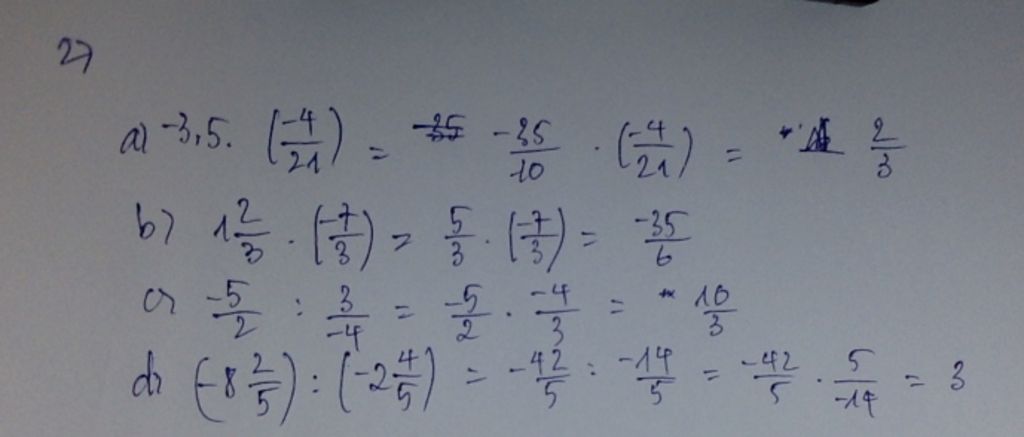 2)
a) -3,5. (-4/21) = -35/10 . (-4/21) = 2/3
b) 1 2/3 . (-7/3) = 5/3 . (-7/3) = -35/6
c) -5/2 : 3/-4 = -5/2 . -4/3 = 10/3
d) (-8 2/5) : (-2 4/5) = -42/5 : -14/5 = -42/5 . 5/-14 = 3